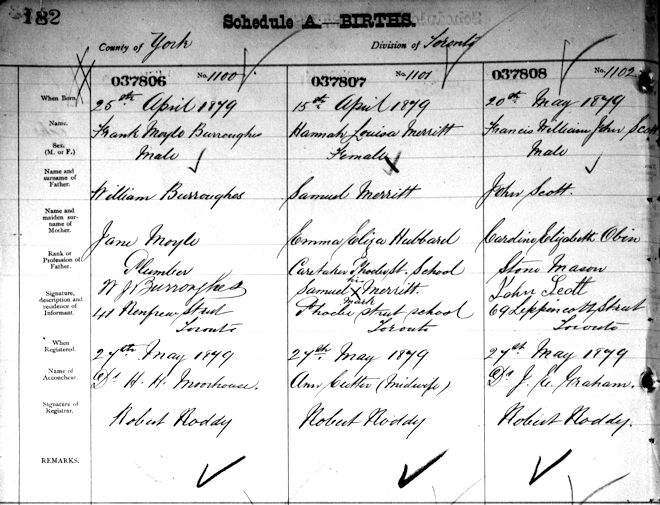 182
Schedule A—BIRTHS.
County of York Division of Toronto
037806 No. 1100 037807 No. 1101 037808 No. 1102
When Born. 25th April 1879 15th April 1879 20th May 1879
Name. Frank Moyle Burroughes Hannah Louisa Merritt Francis William John Scott
Sex. (M. or F.) Male Female Male
Name and surname of Father. William Burroughes Samuel Merritt John Scott.
Name and maiden surname of Mother. Jane Moyle Emma Eliza Hubbard Caroline Elizabeth Obin
Rank or Profession of Father. Plumber Caretaker Phoebe St. School Stone Mason
Signature, description and residence of Informant. W J Burroughes Samuel his X mark Merritt. John Scott
41 Renfrew Street Phoebe street school 69 Lippincott Street
Toronto Toronto Toronto
When Registered. 27th May 1879 27th May 1879 27th May 1879
Name of Accoucheur. Dr H. H. Moorhouse. Ann Cutter (Midwife) Dr J. E. Graham.
Signature of Registrar. Robert Roddy Robert Roddy Robert Roddy.
REMARKS.